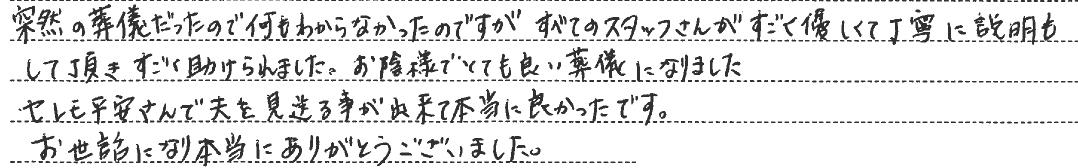 突然の葬儀だったので何もわからなかったのですが すべてのスタッフさんがすごく優しくて丁寧に説明も
して頂きすごく助けられました。お陰様でとても良い葬儀になりました
セレモ平安さんで夫を見送る事が出来て本当に良かったです。
お世話になり本当にありがとうございました。